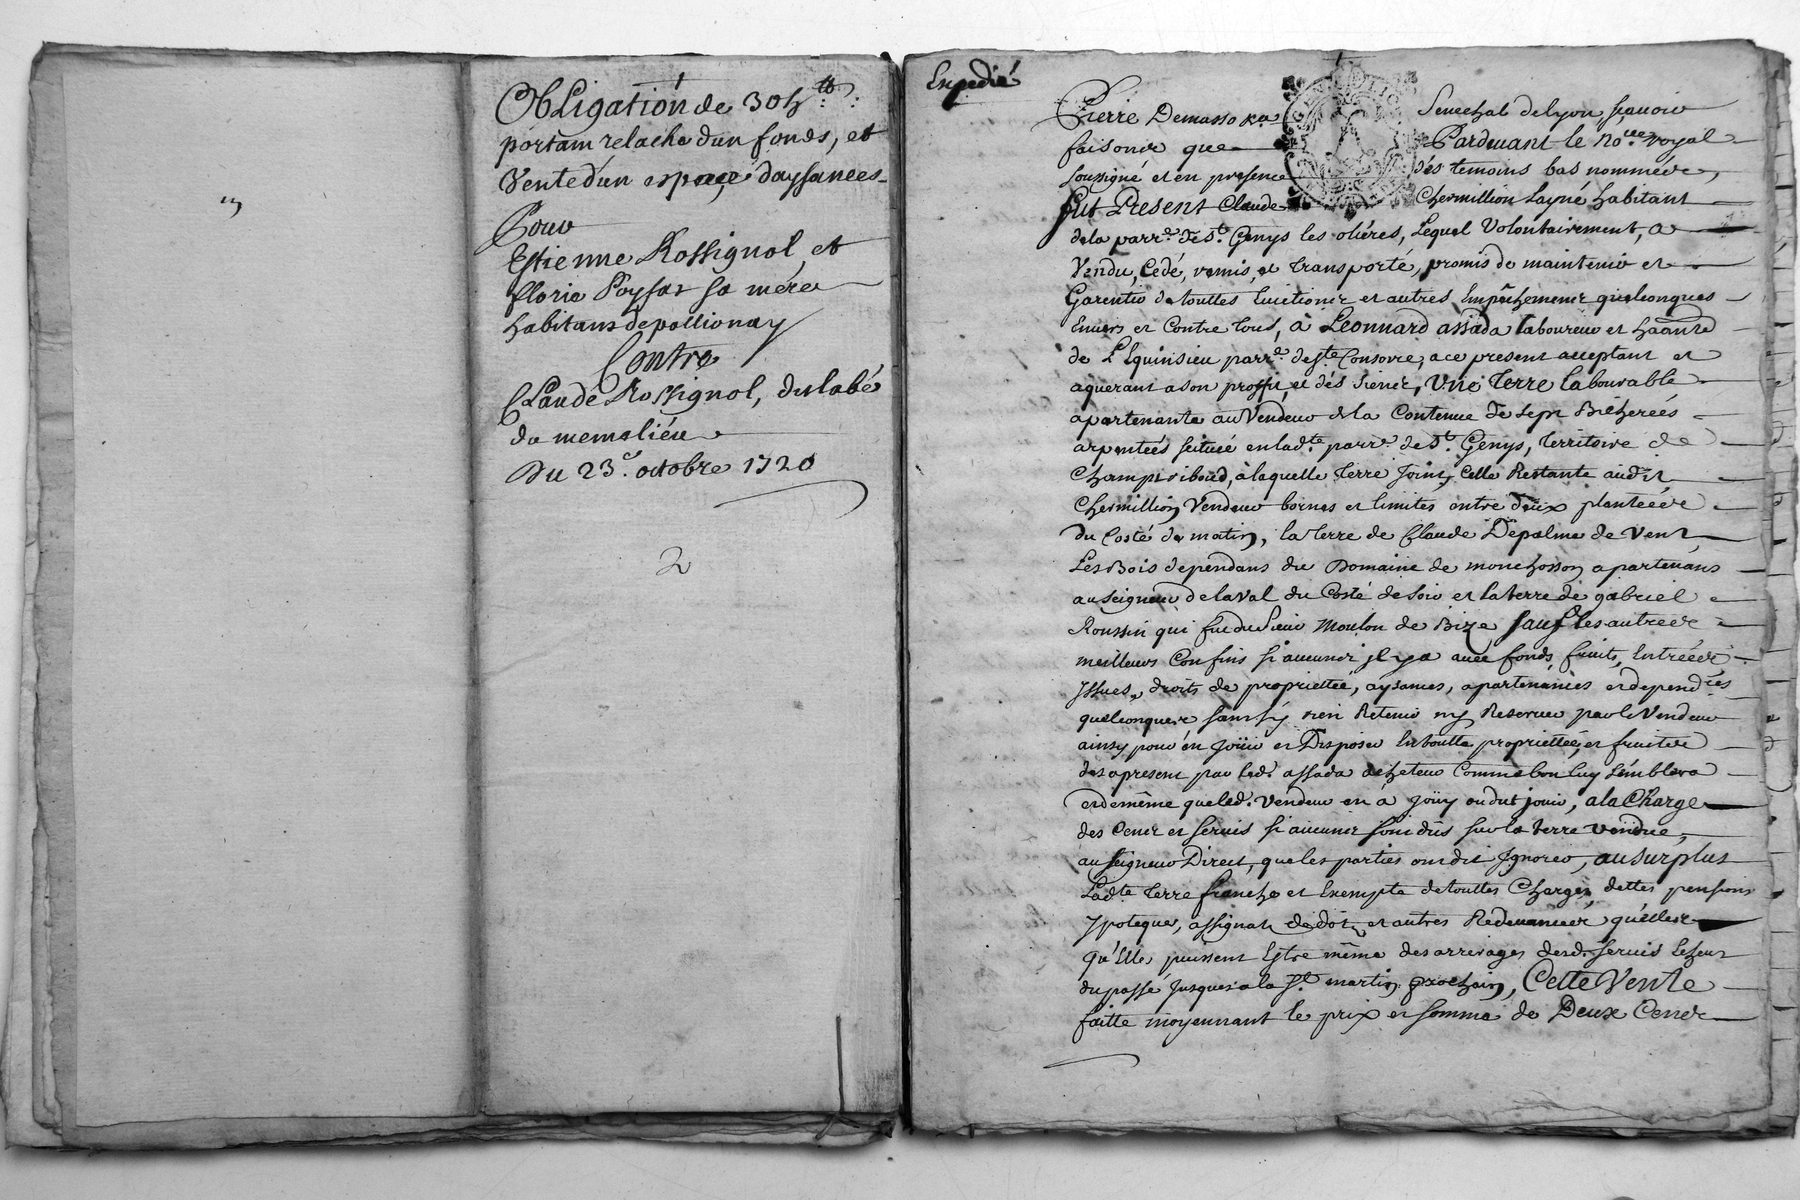 Obligation de 30 h tt
portant relache dun fonds, et
Vente dun espace daysances
Pour
Estienne Rossignol et
florie Poysat sa mére
habitans de pollionay
Contre
Claude Rossignol, du labé
de memaliéu
Du 23e. octobre 1720
2
Expedié
Pierre Demasso Senechal de lyon scavoir
faisons que Pardevant le no.re royal
soussigné et en presence dés temoins bas nommés,
fut Present Claude Chermillion Layné habitant
de la parr.e de St. Genys les oliéres, Lequel Volontairement, a
Vendu, Cedé, remis, et transporté, promis de maintenir et
Garentir de touttes Evictions et autres Empêchemens quelconques
Envers et Contre tous, à Leonnard assada laboureur et haânt
de L'Equinsieu parr.e de Ste Consorce, ace present acceptant et
aquerant a son proffit, et dés siens, Une Terre labourable
apartenante au Vendeur de la Contenue de sept Bicherées
arpentées scituée en lad.te parr.e de St. Genys, territoire de
Champ riboud, à laquelle terre joint, Celle Restante audit
Chermillion Vendeur bornes et limites entre deux plantées
du Costé de matin, la terre de Claude Depalme de Vent,
Les Bois dependans du Domaine de monchosson apartenans
au seigneur de laval du Costé de soir et la terre de gabriel
Roussin qui fut du sieur Moulon de Bize sauf les autres
meilleurs Confins si aucuns jl y a avec fonds fruits, Entrées
Jssues, droits de proprietteé, aysances, apartenances et depend.ces
quelconques sans sy rien Retenir ny Reserver par le Vendeur
ainsy pour én Joüir et Disposer En toutte propriettée et fruits
des apresent par led.t assada acheteur Comme bon luy semblera
et de même que led. Vendeur en à joüy ou dut jouir, a la Charge
des Cens et servis si aucuns sont dûs sur la terre vendue,
au seigneur Direct, que les parties ont dit Jgnorer, au surplus
Lad.te terre franche et Exempte de touttes Charges dettes pensions
Ypoteques, assignats de dot, et autres Redevances quelles
qu'Elles puissent Estre même des arrerages desd. servis
du passé jusques a la St. martin prochain, Cette Vente
faitte moyennant le prix et somme de Deux Cens